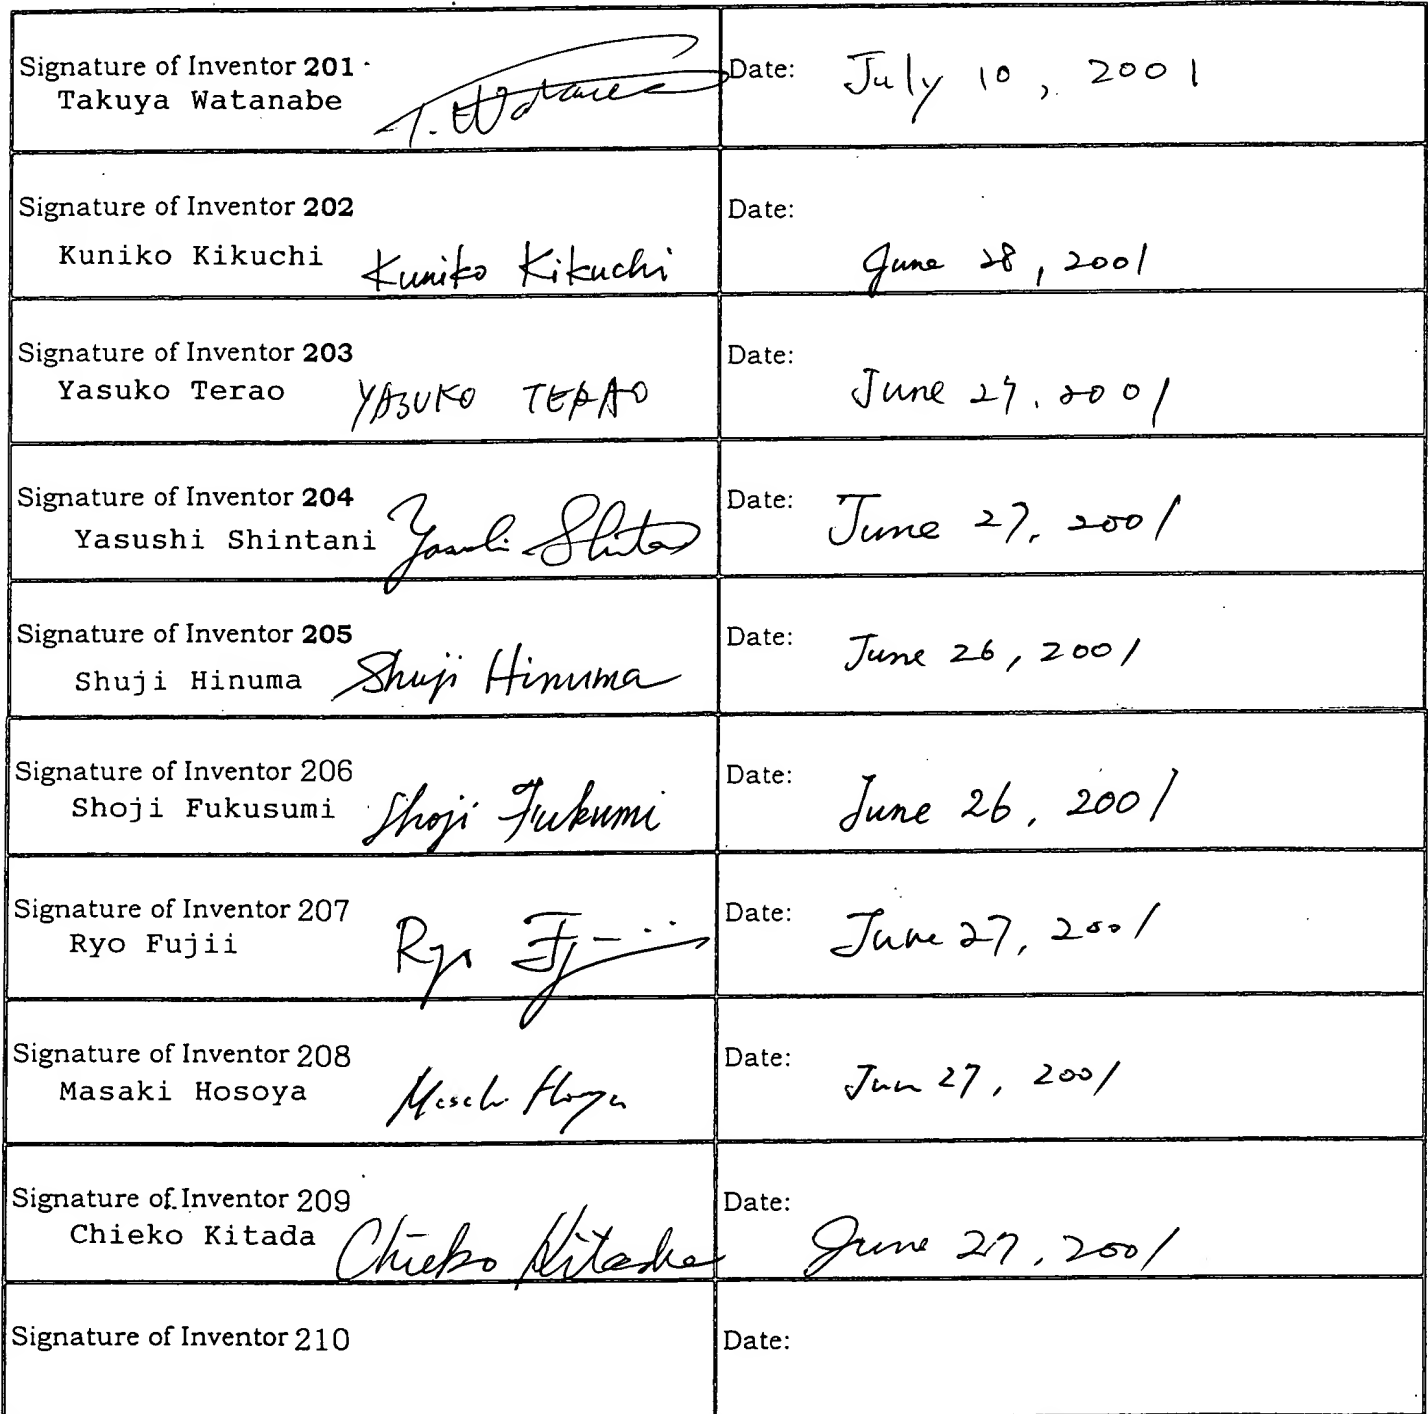 Signature of Inventor 201
Takuya Watanabe
T. Watanabe
Date: July 10, 2001
Signature of Inventor 202
Kuniko Kikuchi
Kuniko Kikuchi
Date:
June 28, 2001
Signature of Inventor 203
Yasuko Terao
YASUKO TERAO
Date:
June 27, 2001
Signature of Inventor 204
Yasushi Shintani
Yasushi Shintani
Date: June 27, 2001
Signature of Inventor 205
Shuji Hinuma
Shuji Hinuma
Date: June 26, 2001
Signature of Inventor 206
Shoji Fukusumi
Shoji Fukusumi
Date: June 26, 2001
Signature of Inventor 207
Ryo Fujii
Ryo Fujii
Date: June 27, 2001
Signature of Inventor 208
Masaki Hosoya
Masaki Hosoya
Date: Jun 27, 2001
Signature of Inventor 209
Chieko Kitada
Chieko Kitada
Date:
June 27, 2001
Signature of Inventor 210
Date: